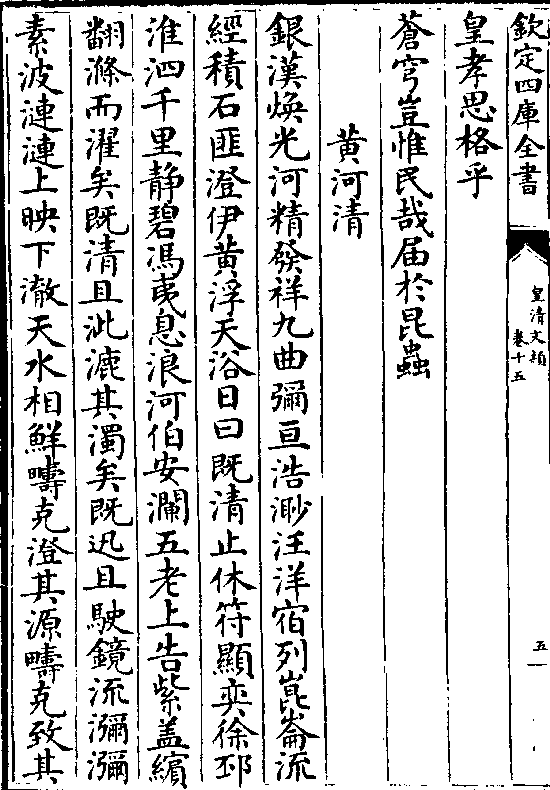 欽定四庫全書
皇清文穎
卷十五
五
皇孝思格乎
蒼穹豈惟民哉届於昆蟲
黄河清
銀漢煥光河精發祥九曲彌亘浩渺汪洋宿列崑崙流
經積石匪澄伊黄浮天浴日曰既清止休符顯奕徐邳
淮泗千里静碧馮夷息浪河伯安瀾五老上告紫盖繽
翻滌而濯矣既清且泚漉其濁矣既迅且駛鏡流瀰瀰
素波漣漣上映下澈天水相鮮疇克澄其源疇克致其